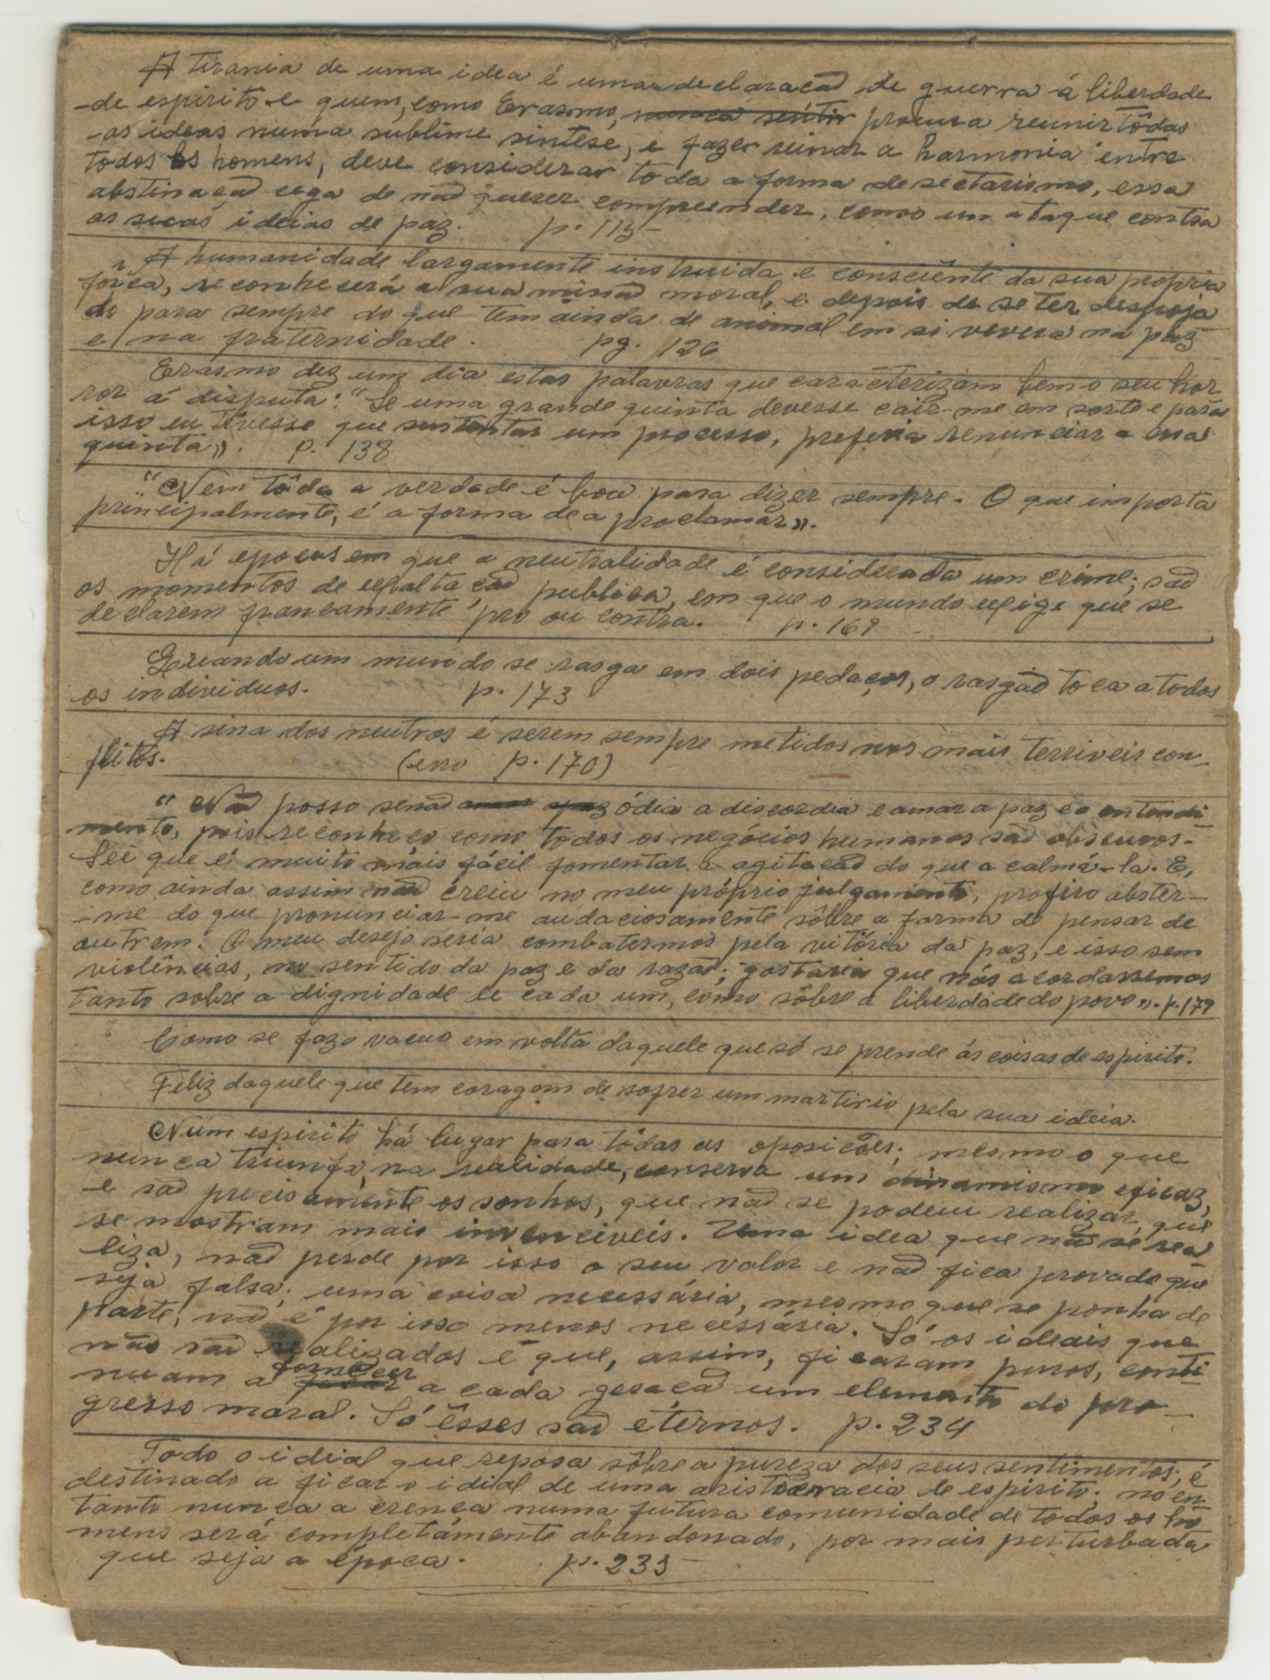 A tirania de uma idea é uma declaração de guerra á liberdade
-de espirito e quem, como Erasmo, nunca sentir procura reunir tôdas
-as ideas numa sublime sintese, e fazer reinar a harmonia entre
todos os homens, deve considerar toda a forma de sectarismo, essa
obstinação cega de não querer compreender, como um ataque contra
as suas ideias de paz. p. 115-
A humanidade largamente instruida e consciênte da sua propria
fôrça, reconhecerá a sua missão moral, e depois de se ter despoja
do para sempre do que tem ainda de animal em si vivera na paz
e na fraternidade. pg. 126
Erasmo diz um dia estas palavras que caracterizam bem o seu hor
ror á disputa: "Se uma grande quinta devesse cair-me em sorte e para
isso eu tivesse que sustentar um processo, preferia renunciar a essa
quinta». p. 138
"Nem tôda a verdade é boa para dizer sempre. O que importa
principalmente, é a forma de a proclamar».
Há epocas em que a neutralidade é considerada um crime; são
os momentos de exaltação publica, em que o mundo exige que se
declarem francamente pro ou contra. p. 169
Quando um mundo se rasga em dois pedaços, o rasgão toca a todos
os individuos. p. 173
A sina dos neutros é serem sempre metidos nos mais terriveis con-
flitos. (erro p. 170)
"Não posso senão amar a paz ódio a discordia e amar a paz e o entendi-
mento, pois reconheço como todos os negócios humanos são obscuros-
Sei que é muito mais fácil fomentar a agitação do que a calmá-la. E,
como ainda assim não creio no meu próprio julgamento, prefiro abster-
-me do que pronunciar-me audaciosamente sôbre a forma de pensar de
outrem. O meu desejo seria combatermos pela vitória da paz, e isso sem
violências, no sentido da paz e da razão; gostaria que nós acordassemos
tanto sobre a dignidade de cada um, como sôbre a liberdade do povo». p. 179
Como se faz o vacuo em volta daquele que só se prende ás coisas de espirito.
Feliz daquele que tem coragem de sofrer um martirio pela sua ideia.
Num espirito há lugar para tôdas as oposições; mesmo o que
nunca triunfa, na realidade, conserva um dinamismo eficaz,
e são precisamente os sonhos, que não se podem realizar, que
se mostram mais invenciveis. Uma idea que não se rea
liza, não perde por isso o seu valor e não fica provado que
seja falsa; uma coisa necessária, mesmo que se ponha de
parte, não é por isso menos necessária. Só os ideais que
não são realizados é que, assim, ficaram puros, conti
nuam a fornecer a cada geração um elemento do pro-
gresso moral. Só êsses são eternos. p. 234
Todo o idial que reposa sôbre a pureza dos seus sentimentos, é
destinado a ficar o idial de uma aristocracia de espirito; no en
tanto nunca a crença numa futura comunidade de todos os ho
mens será completamente abandonado, por mais perturbada
que seja a época. p. 235